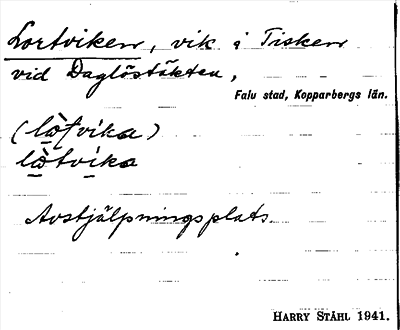 Lortviken, vik i Tisken
vid Daglöstäkten,
Falu stad, Kopparbergs län.
(lòtvika)
lòtvika
Avstjälpningsplats.
HARRY STÅHL 1941.